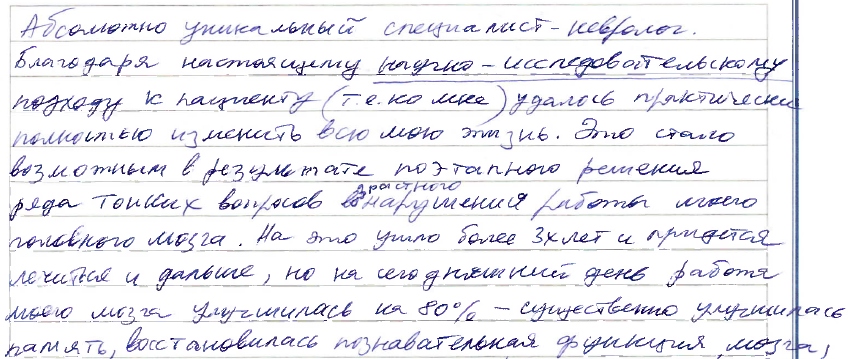 Абсолютно уникальный специалист-невролог.
Благодаря настоящему научно-исследовательскому
подходу к пациенту (т.е. ко мне) удалось практически
полностью изменить всю мою жизнь. Это стало
возможным в результате поэтапного решения
ряда тонких вопросов возрастного нарушения работы моего
головного мозга. На это ушло более 3х лет и придется
лечиться и дальше, но на сегодняшний день работа
моего мозга улучшилась на 80% – существенно улучшилась
память, восстановилась познавательная функция мозга,